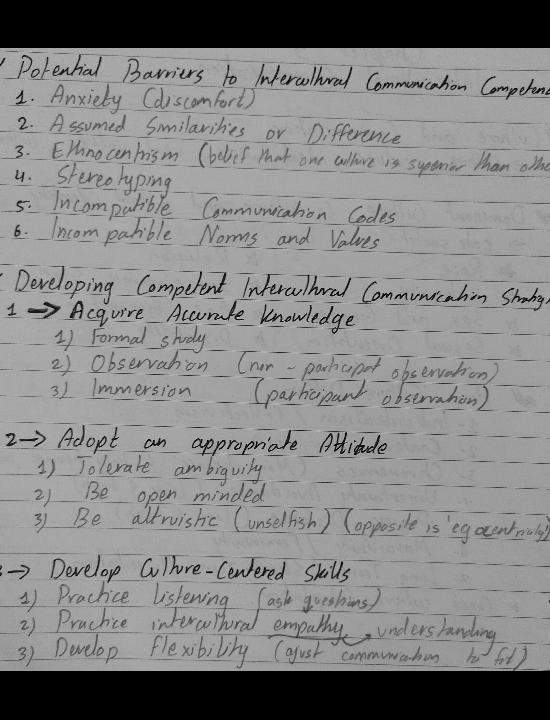 Potential Barriers to Intercultural Communication Competenc
1. Anxiety (discomfort)
2. Assumed Similarities or Difference
3. Ethnocentrism (belief that one culture is superior than othe
4. Stereotyping
5. Incompatible Communication Codes
6. Incompatible Norms and Values
Developing Competent Intercultural Communication Strateg
1 → Acquire Accurate Knowledge
1) Formal study
2) Observation (non-participat observation)
3) Immersion (participant observation)
2→ Adopt an appropriate Attitude
1) Tolerate ambiguity
2) Be open minded
3) Be altruistic (unselfish) (opposite is
→ Develop Culture-Centered Skills
1) Practice Listening (ask questions)
2) Practice intercultural empathy → understanding
3) Develop flexibility (ajust communication to fit)